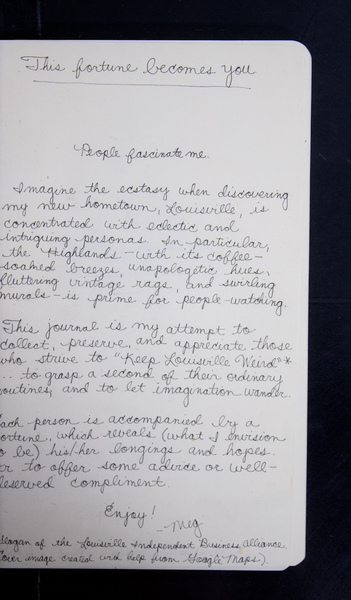 This fortune becomes you
People fascinate me.
Imagine the ecstasy when discovering
my new hometown, Louisville, is
concentrated with eclectic and
intriguing personas. In particular,
the Highlands - with its coffee-
soaked breezes, unapologetic hues,
fluttering vintage rags, and swirling
murals - is prime for people-watching.
This journal is my attempt to
collect, preserve, and appreciate those
who strive to "Keep Louisville Weird"*
... to grasp a second of their ordinary
routines, and to let imagination wander.
Each person is accompanied by a
fortune, which reveals (what I envision
to be) his/her longings and hopes.
Or to offer some advice or well-
deserved compliment.
Enjoy!
- Meg
slogan of the Louisville Independent Business Alliance.
(Cover image created with help from Google Maps).